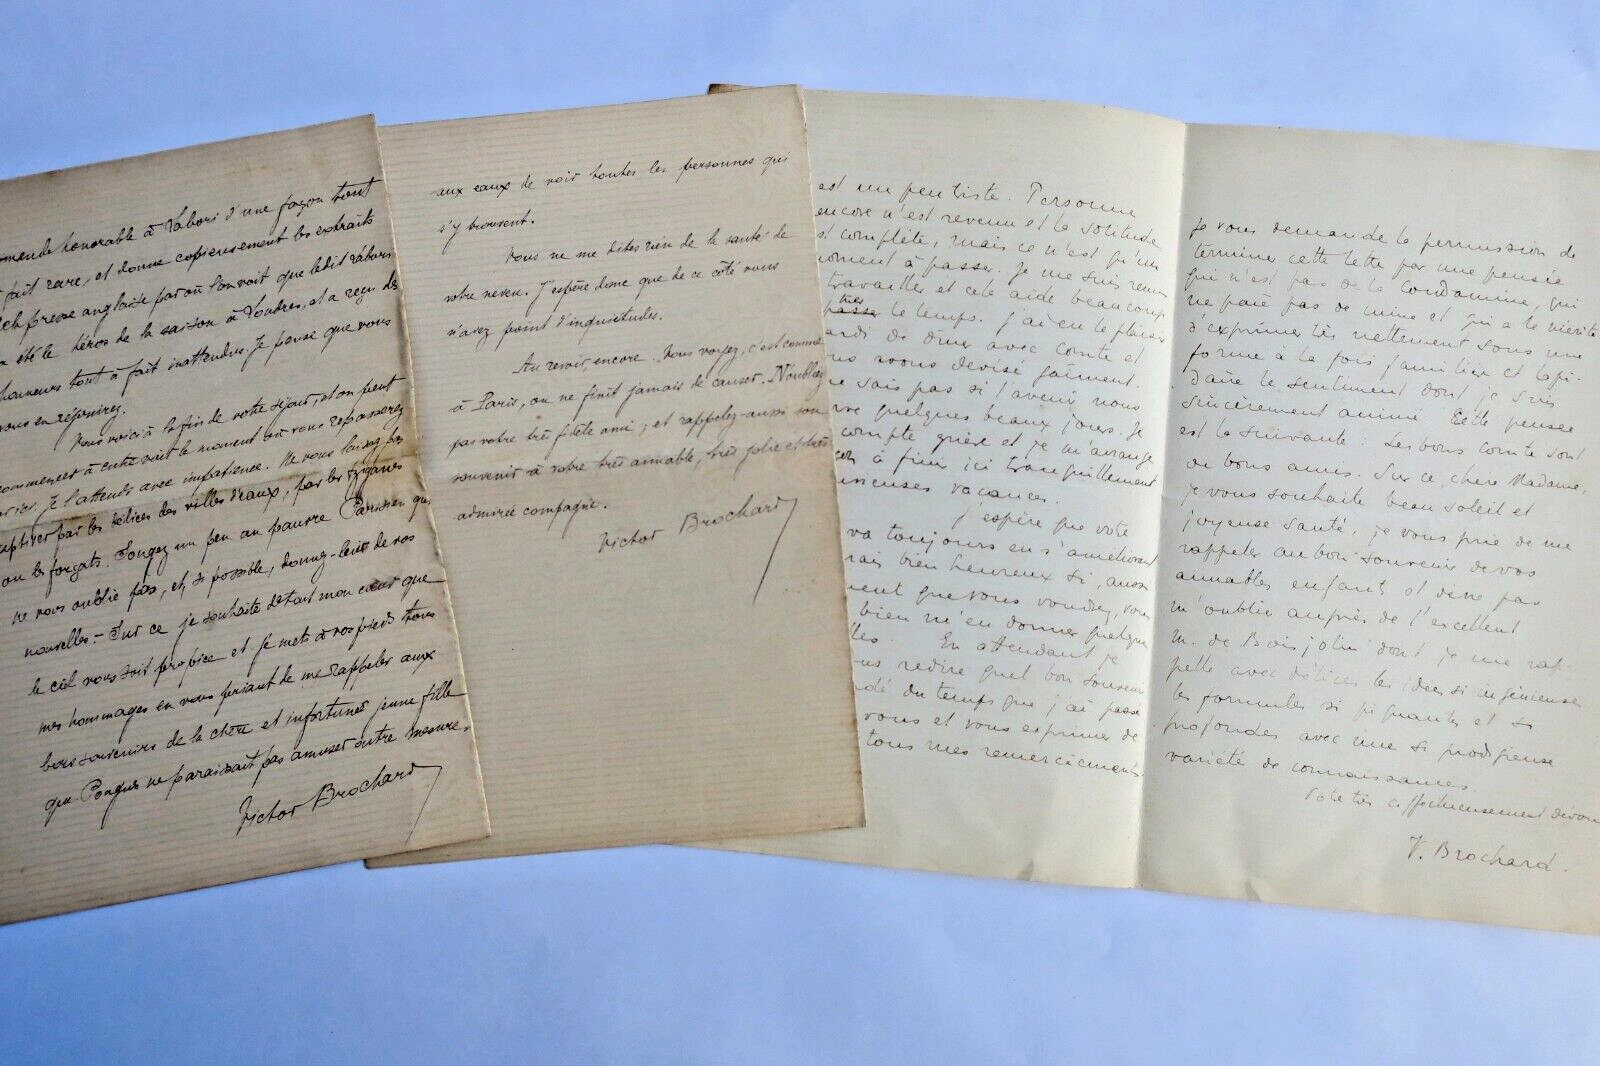 honorable à Labori d'une façon tout
fait rare, et donne copieusement les extraits
presse anglaise par où l'on voit que ledit Labori
été le héros de la saison à Londres, et a reçu des
honneurs tout à fait inattendus. Je pense que vous
vous en réjouirez.
Vous voici à la fin de votre séjour, et on peut
commencer à entrevoir le moment où vous repasserez
Je l'attends avec impatience. Ne vous laissez pas
captiver par les délices des villes d'eaux, par les tziganes
ou les forçats. Songez un peu au pauvre Parisien qui
ne vous oublie pas, et, si possible, donnez-lui de vos
nouvelles – Sur ce je souhaite de tout mon cœur que
le ciel vous soit propice et je mets à vos pieds tous
mes hommages en vous priant de me rappeler aux
bons souvenirs de la chère et infortunée jeune fille
que Pougues ne paraissait pas amuser outre mesure.
Victor Brochard
aux eaux de voir toutes les personnes qui
s'y trouvent.
Vous ne me dites rien de la santé de
votre neveu. J'espère donc que de ce côté vous
n'avez point d'inquiétudes.
Au revoir, encore. Vous voyez, c'est comme
à Paris, on ne finit jamais de causer. N'oubliez
pas votre très fidèle ami, et rappelez aussi son
souvenir à votre très aimable, très jolie et très
admirée compagne.
Victor Brochard
est un pentiste. Personne
encore n'est revenu et la solitude
complète, mais ce n'est qu'un
moment à passer. Je me suis remis
travailler et cela aide beaucoup
passer le temps. J'ai eu le plaisir
de dîner avec Comte et
nous avons devisé gaîment.
sais pas si l'avenir nous
quelques beaux jours. Je
compte guère et je m'arrange
à finir ici tranquillement
vacances.
J'espère que votre
va toujours en s'améliorant
bien heureux si, aussi
que vous voudrez, vous
bien m'en donner quelques
En attendant je
vous redire quel bon souvenir
du temps que j'ai passé
vous et vous exprimer de
tous mes remerciements.
Je vous demande la permission de
terminer cette lettre par une pensée
qui n'est pas de la Condamine, qui
ne paie pas de mine et qui a le mérite
d'exprimer très nettement sous une
forme à la fois familière et lapi-
daire le sentiment dont je suis
sincèrement animé. Cette pensée
est la suivante : Les bons comtes sont
de bons amis. Sur ce, chère Madame,
je vous souhaite beau soleil et
joyeuse santé, je vous prie de me
rappeler au bon souvenir de vos
aimables enfants et de ne pas
m'oublier auprès de l'excellent
M. de Boisjolin dont je me rap-
pelle avec délices les idées si ingénieuses
les formules si piquantes et si
profondes avec une si prodigieuse
variété de connaissances
Votre très affectueusement dévoué
V. Brochard.